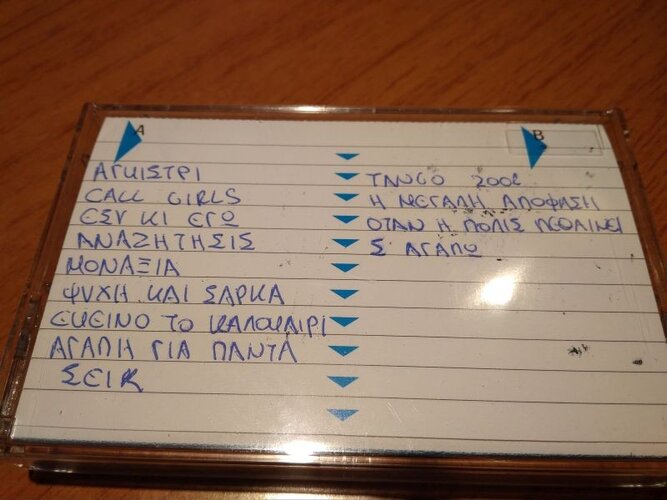 A
ΑΓΚΙΣΤΡΙ
CALL GIRLS
ΕΣΥ ΚΙ ΕΓΩ
ΑΝΑΖΗΤΗΣΙΣ
ΜΟΝΑΞΙΑ
ΨΥΧΗ ΚΑΙ ΣΑΡΚΑ
ΕΚΕΙΝΟ ΤΟ ΚΑΛΟΚΑΙΡΙ
ΑΓΑΠΗ ΓΙΑ ΠΑΝΤΑ
ΣΕΙΚ
B
TANGO
Η ΜΕΓΑΛΗ ΑΠΟΦΑΣΗ
ΟΤΑΝ Η ΠΟΛΙΣ ΠΕΘΑΙΝΕΙ
Σ ΑΓΑΠΩ